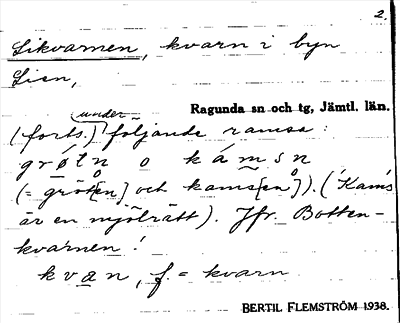 2.
Likvarnen, kvarn i byn
Lien,
Ragunda sn och tg, Jämtl. län.
under
(forts.) följande ramsa:
grøtn o kåmsn
(= gröt[en] och kams[en]). (Kams
är en mjölrätt). Jfr. Botten-
kvarnen!
kvan, f. = kvarn
BERTIL FLEMSTRÖM 1938.